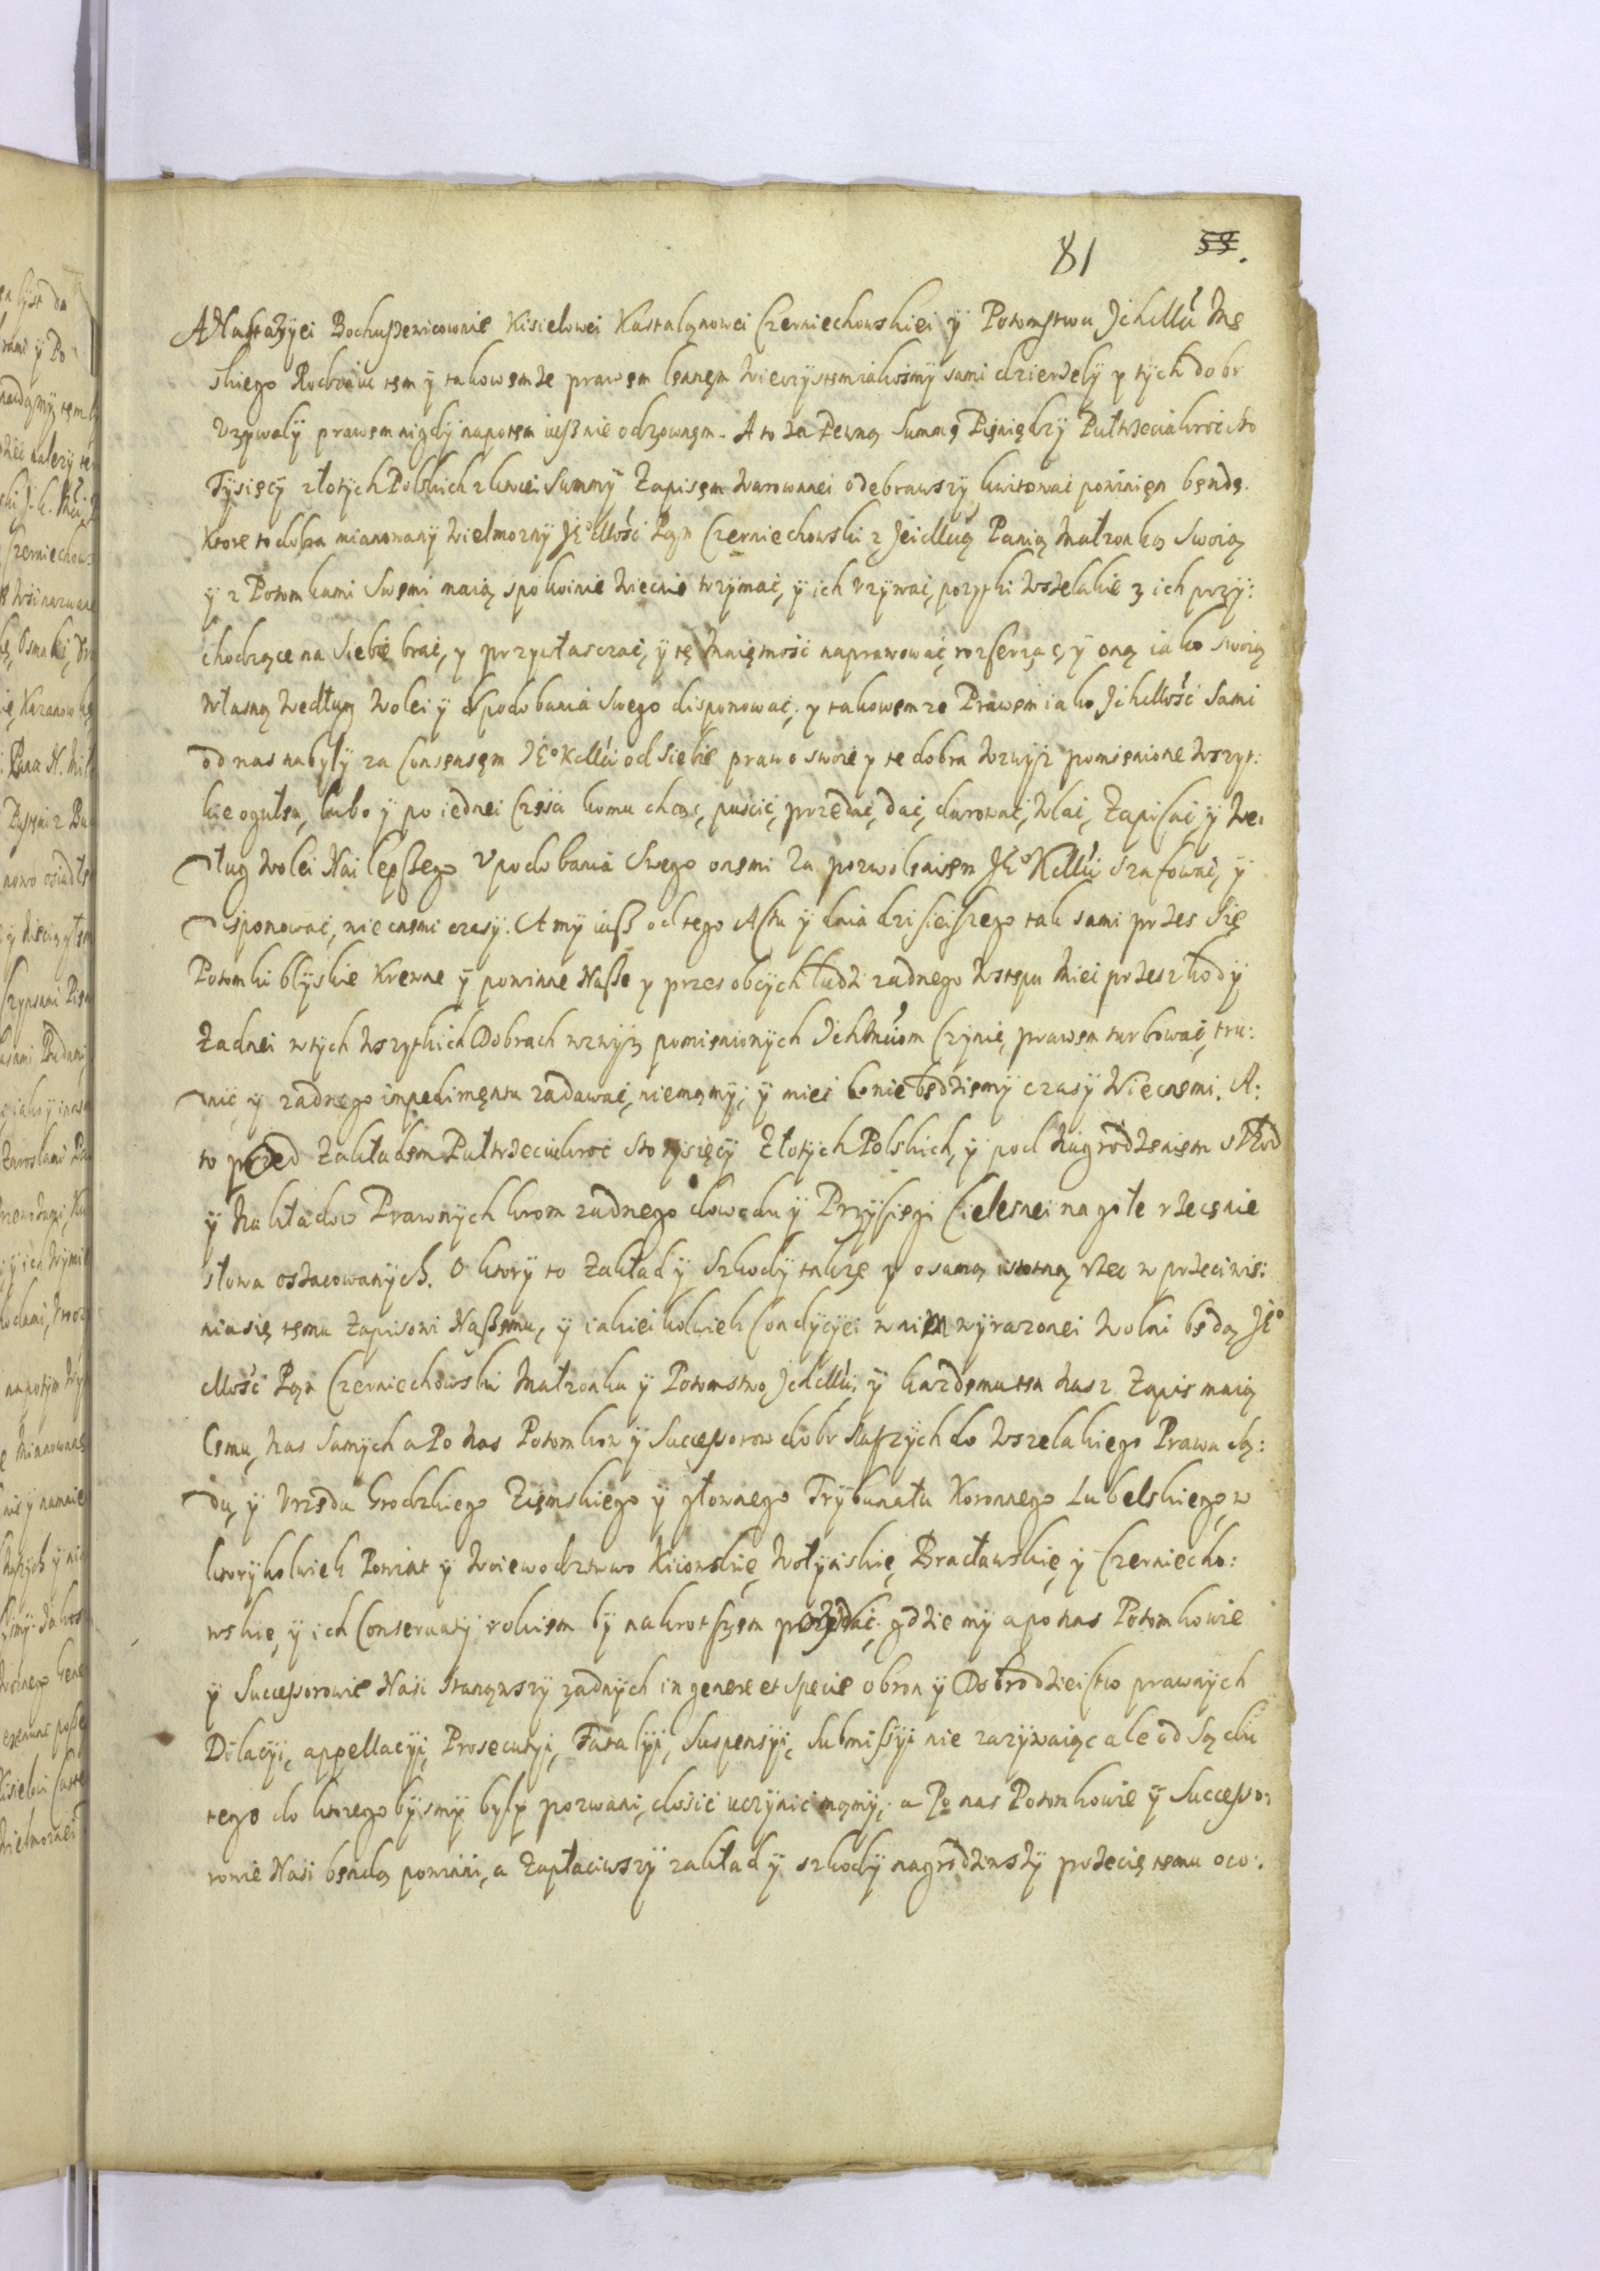 81 59.
ANastazyei Bochuszewicownie Kisielowei Kasztaląnowei Czerniechowskiei ÿ Potomstwu Jchmću Mę
skiego Rodzaiu tem ÿ takowemze prawem lęnnęm wieczystem iakosmÿ sami dzierzelÿ y tÿch dobr
Vzywalÿ prawem nigdÿ napotem iusz nie odzownęm. A to za Pewną Summę Pięniędzy Pułtrzeciakroć sto
Tÿsięcÿ złotÿch Polskich z ktorei Summÿ Zapisęm warownei odebrawszÿ kwitować powinięn będę.
Ktore to dobra mianowanÿ wielmoznÿ JEo Mość Pąn Czerniechowski z Jeimcią Panią Małzonką Swoią
ÿ z Potomkami Swemi maią spokoinie wiecnie trzÿmać, ÿ ich vzÿwać, pozytki wszelakie z ich przÿ:
chodzące na siebie brać, y przywłasczać, ÿ tę Maiętność naprawować, rozserzać, ÿ oną iako swoią
własną według wolei ÿ vpodobania swego disponować, y takowemze Prawem iako Jchmość sami
od nas nabÿlÿ za Consensęm JEo KMći od siebie prawo swoie y te dobra wzwÿz pomięnione wszyt:
kie ogułem, lubo ÿ po iednei Częsci komu chcąc, puscić, przedać, dać, darować, wlać, Zapisać, ÿ we:
dług wolei Nailepszego Vpodobania Swego onemi za pozwolenięm JEo KMći szafować, ÿ
disponować, wiecnemi czasÿ. A mÿ iusz od tego Aktu ÿ dnia dzisieiszego tak sami przes się
Potomki bliskie Krewne ÿ powinne Nasze y przes obcÿch ludzi zadnego wstępu Miei przeszkodÿ
Zadnei w tÿch wszytkich Dobrach wzwÿz pomienionÿch Jchmćiom Czÿnić, prawem turbować, tru:
dnić ÿ zadnego impedimentu zadawać, niemamÿ, ÿ mieć bonie będziemÿ czasÿ Wiecnemi. A:
to pod Zakładem Pułtrzeciakroć Sto tysięcÿ Złotÿch Polskich, ÿ pod nagrodzenięm Szkod
ÿ Nakładow Prawnÿch krom zadnego dowodu ÿ Przysięgi Cielesnei na gołe rzecęnie
słowa oszacowanÿch. O ktorÿ to Zakład ÿ Szkodÿ takze y o samą istotną rzec w przeciwie:
nia się temu zapisowi Naszemu, ÿ iakieikolwiek Condÿcÿei w nim wÿrazonei wolni będą JEo
Mość Pąn Czerniechowski Małzonka ÿ Potomstwo Jchmći, ÿ kazdemu ten nasz Zapis maią
Cemu, nas samÿch a Po nas Potomkow ÿ Successorow dobr naszÿch do wszelakiego Prawa Są:
du, ÿ Vrzędu Grodzkiego Ziemskiego ÿ głownego Trÿbunału Koronnego Lubelskiego, w
ktorÿkolwiek Powiat ÿ woiewodztwo Kiiowskie, Wołÿnskie, Bracławskie, ÿ Czerniecho:
wskie, ÿ ich Conservatÿ rokiem bÿ nakrotszęm gdzie mÿ a po nas Potomkowie
ÿ Successorowie Nasi Stanąwszÿ zadnÿch in genere et specie obron ÿ Dobrodzieistw prawnÿch
Dilacÿi, appellacÿi, Prosecutÿi, Fatalÿi, Suspensÿi, Submissÿi nie zazÿwaiąc ale od Sądu
tego do ktorego bÿsmÿ bÿlÿ pozwani, dosić uczÿnić mamÿ, a Po nas Potomkowie ÿ Successo:
rowie Nasi bendą powinni, a Zapłaciwszÿ zakład ÿ szkodÿ nagrodziwszÿ przecię temu oco:.